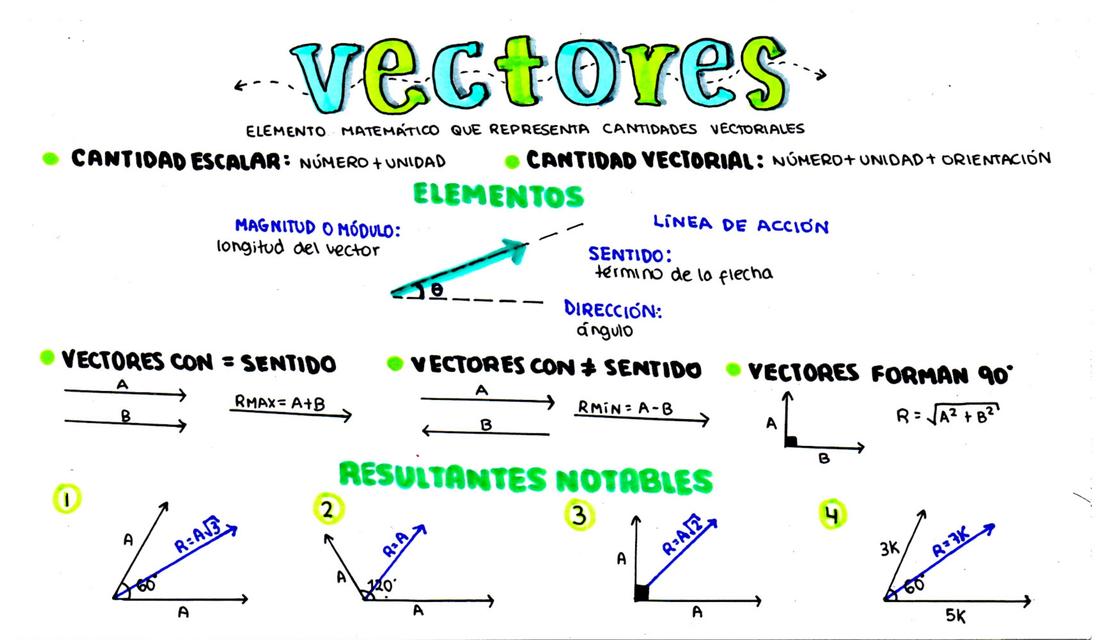 vectores
ELEMENTO MATEMÁTICO QUE REPRESENTA CANTIDADES VECTORIALES
CANTIDAD ESCALAR: NÚMERO + UNIDAD
CANTIDAD VECTORIAL: NÚMERO + UNIDAD + ORIENTACIÓN
ELEMENTOS
MAGNITUD O MÓDULO:
longitud del vector
LÍNEA DE ACCIÓN
SENTIDO:
término de la flecha
θ
DIRECCIÓN:
ángulo
VECTORES CON = SENTIDO
A
B
RMAX = A+B
VECTORES CON ≠ SENTIDO
A
B
RMÍN = A-B
VECTORES FORMAN 90°
A
B
R = √A² + B²
RESULTANTES NOTABLES
1
A
R=A√3
60°
A
2
A
R=A
120°
A
3
A
R=A√2
A
4
3K
R=7K
60°
5K